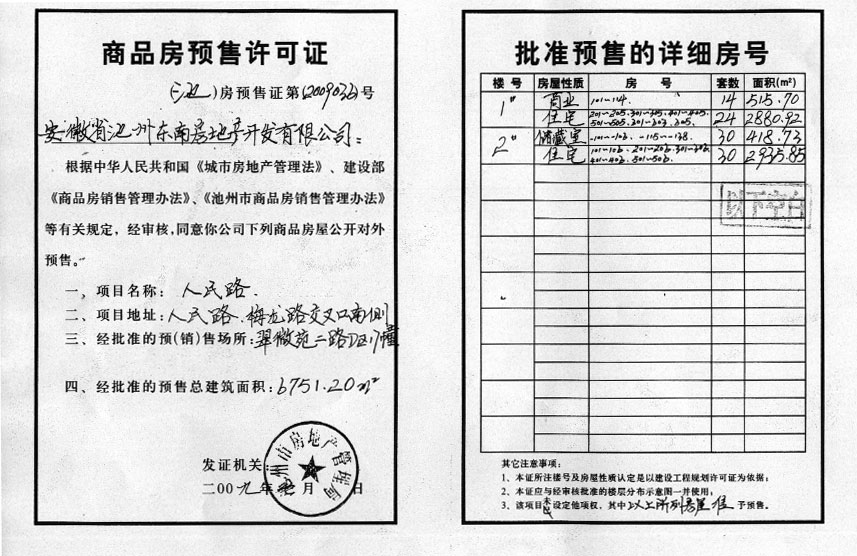 商品房预售许可证
(池)房预售证第(2009036)号
安徽省池州东南房地产开发有限公司:
根据中华人民共和国《城市房地产管理法》、建设部
《商品房销售管理办法》、《池州市商品房销售管理办法》
等有关规定,经审核,同意你公司下列商品房屋公开对外
预售。
一、项目名称:人民路.
二、项目地址:人民路、梅龙路交叉口南侧
三、经批准的预(销)售场所:翠微苑二路
四、经批准的预售总建筑面积:6751.20m²
发证机关:
二00九年 月 日
池州市房地产管理局
批准预售的详细房号
楼号 房屋性质 房号 套数 面积(m²)
1# 商业 101~114. 14 515.70
住宅 201~205.301~305.401~405. 24 2880.92
501~505.
2# 储藏室 -101~-106. -115~-138. 30 418.73
住宅 101~106. 201~206.301~306. 30 2935.85
401~406. 501~506.
以下空白
其它注意事项:
1、本证所注楼号及房屋性质认定是以建设工程规划许可证为依据;
2、本证应与经审核批准的楼层分布示意图一并使用;
3、该项目未设定他项权,其中以上所列房屋准予预售。